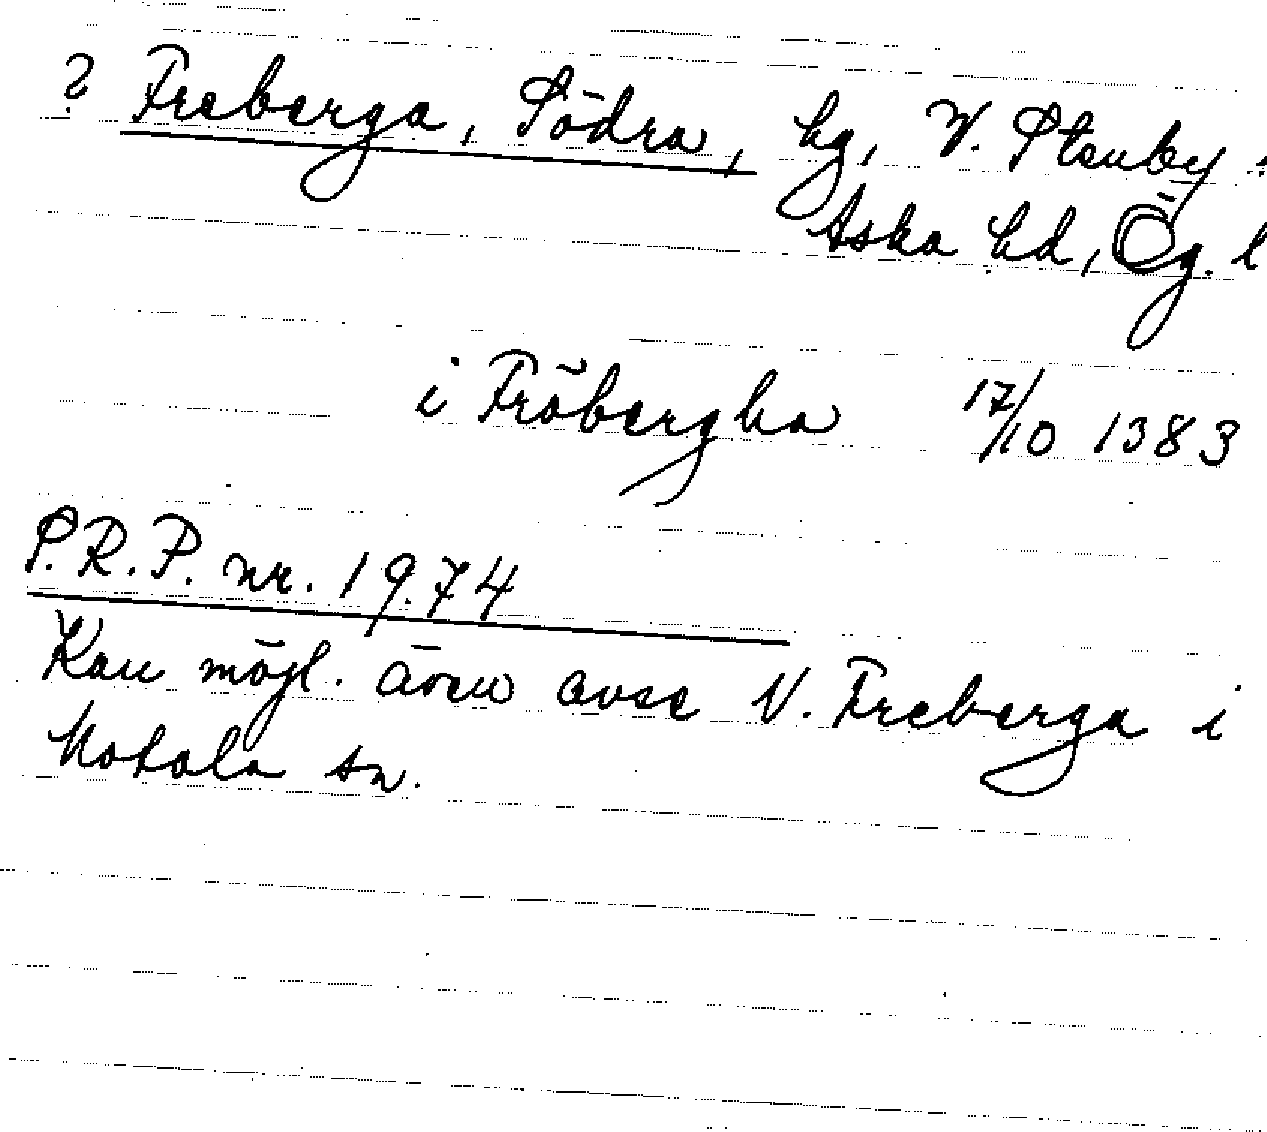 ? Freberga, Södra, hg, V. Stenby s
Aska hd, Ög. l
i Fröbergha 17/10 1383
S.R.P. nr. 1974
Kan mögl. även avse N. Freberga i
Motala sn.